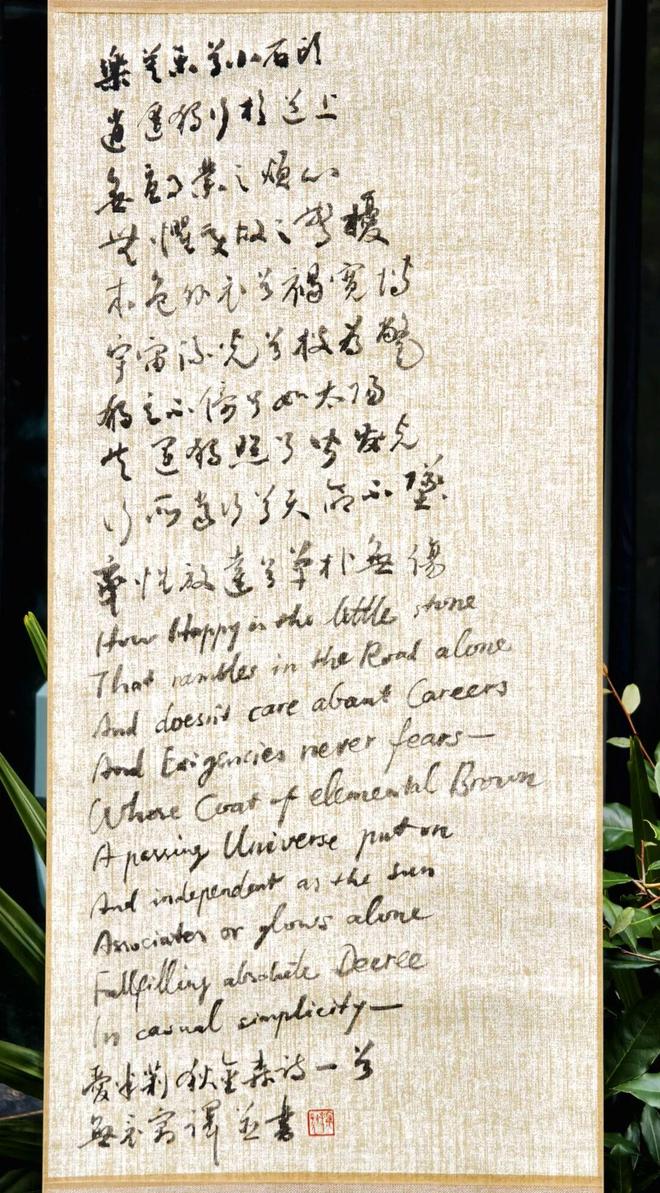 樂莫樂兮小石頭
逍遙獨行於道上
無意功業之煩心
無懼變故之驚擾
本色外衣兮褐寬博
宇宙流光兮披為氅
獨立不倚兮如太陽
共運獨照兮皆發光
行所當行兮天命不墜
率性放達兮草朴無傷
How Happy is the little stone
That rambles in the Road alone
And doesn't care about Careers
And Exigencies never fears—
Whose Coat of elemental Brown
A passing Universe put on
And independent as the sun
Associates or glows alone
Fullfilling absolute Decree
In casual simplicity—
愛米莉狄金森詩一首
無衣 譯並書